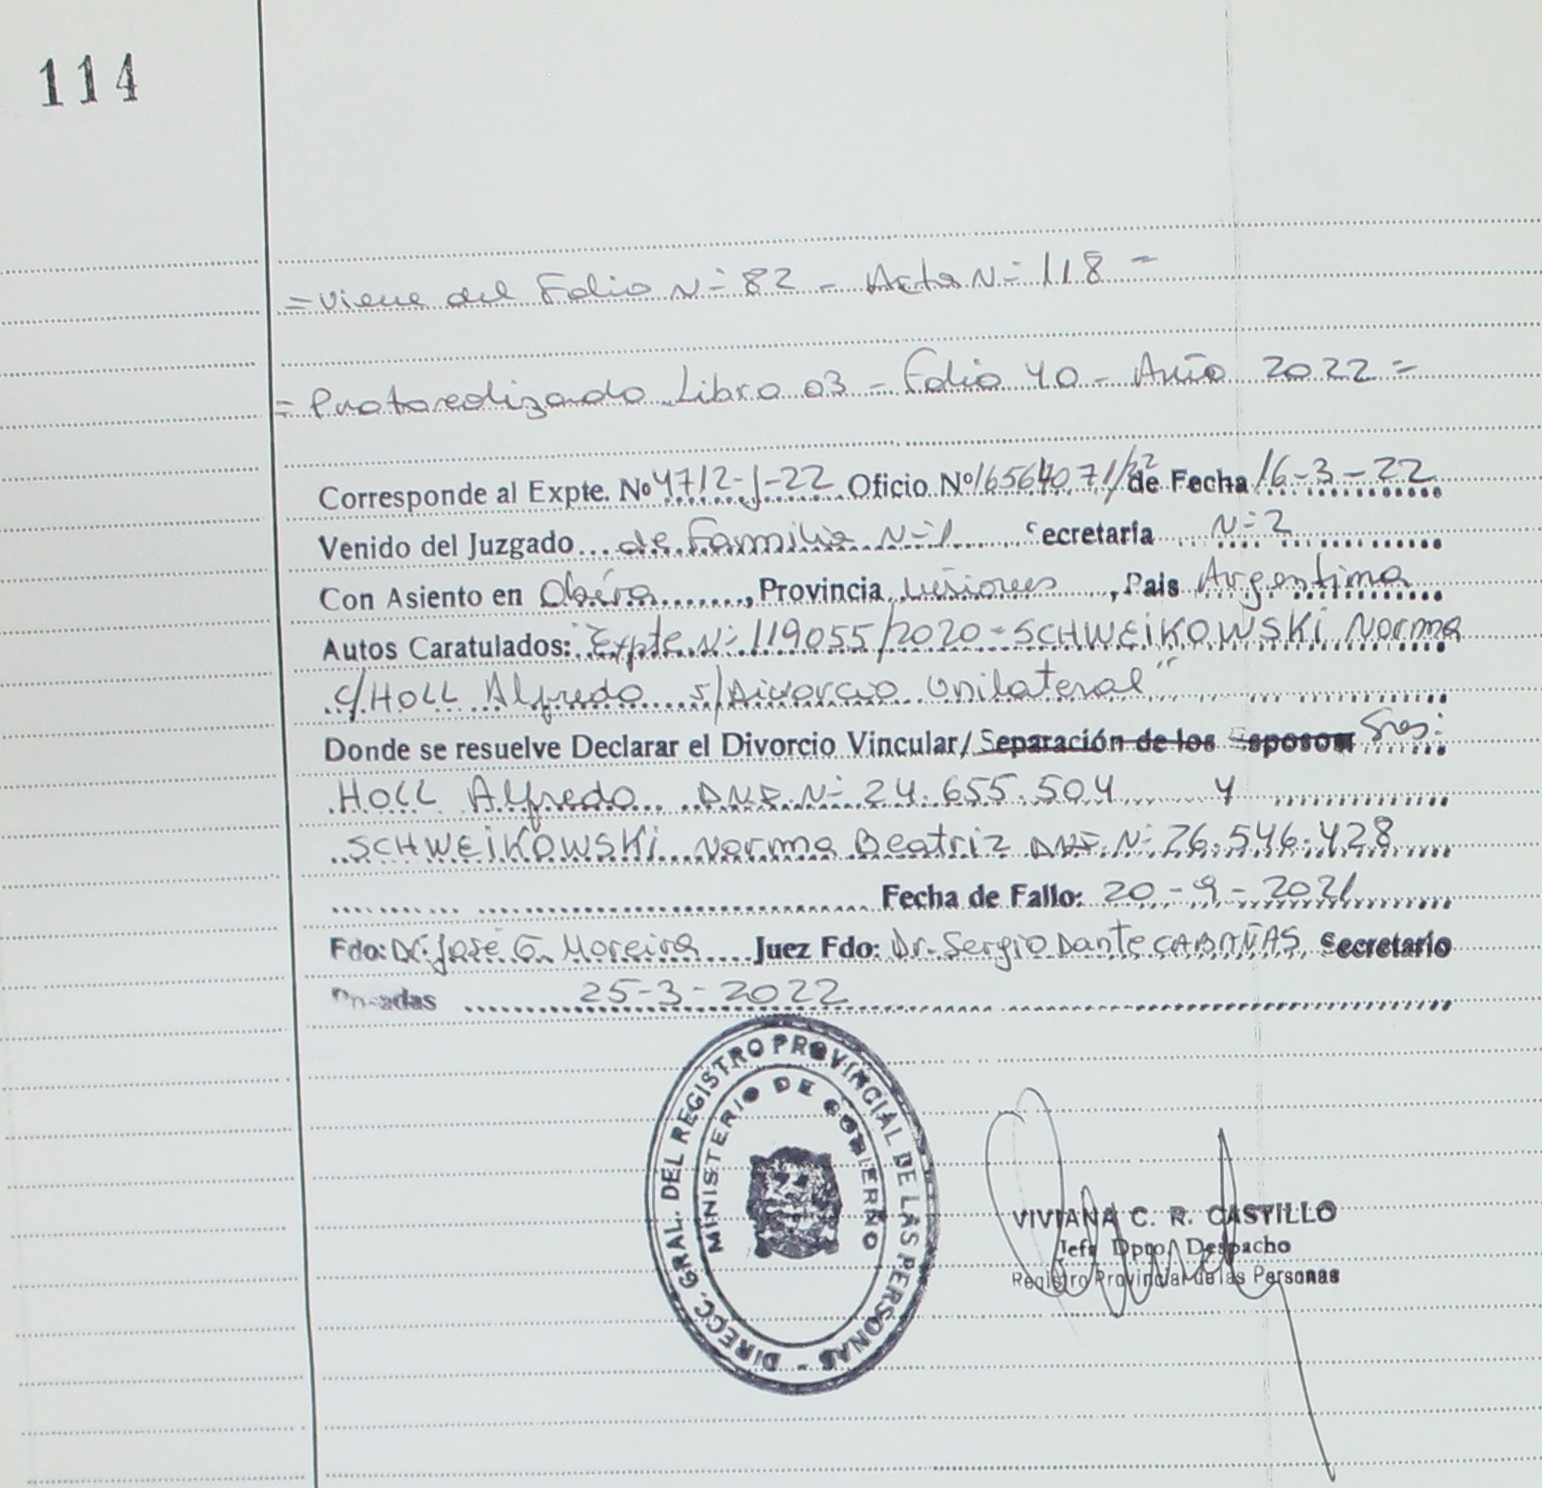 114
= Viene del Folio Nº 82 - Acta Nº 118 =
= Protocolizado Libro 03 - Folio 40 - Año 2022 =
Corresponde al Expte. Nº 4712-J-22 Oficio Nº 16564071/22 de Fecha 16-3-22
Venido del Juzgado de Familia Nº 1 Secretaría Nº 2
Con Asiento en Oberá, Provincia Misiones, Pais Argentina
Autos Caratulados: "Expte Nº 119055/2020 - SCHWEIKOWSKI Norma
c/ HOLL Alfredo s/ Divorcio Unilateral"
Donde se resuelve Declarar el Divorcio Vincular/ Separación de los Esposos Sres:
HOLL Alfredo DNI Nº 24.655.504 y
SCHWEIKOWSKI Norma Beatriz DNI Nº 26.546.428
Fecha de Fallo: 20-9-2021
Fdo: Dr. José G. Moreira Juez Fdo: Dr. Sergio Dante CABAÑAS Secretario
Posadas 25-3-2022
DIRECC. GRAL. DEL REGISTRO PROVINCIAL DE LAS PERSONAS -
MINISTERIO DE GOBIERNO
VIVIANA C. R. CASTILLO
Jefa Dpto. Despacho
Registro Provincial de las Personas